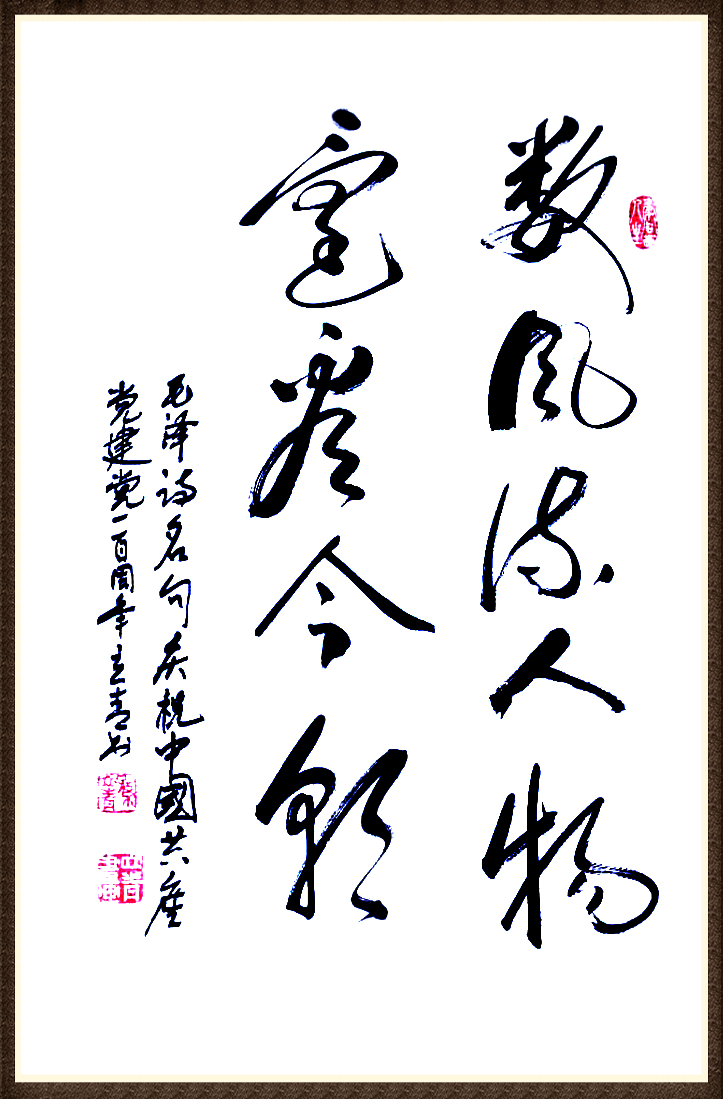 数风流人物
還看今朝
毛泽诗名句庆祝中國共産
党建党一百周年立青书